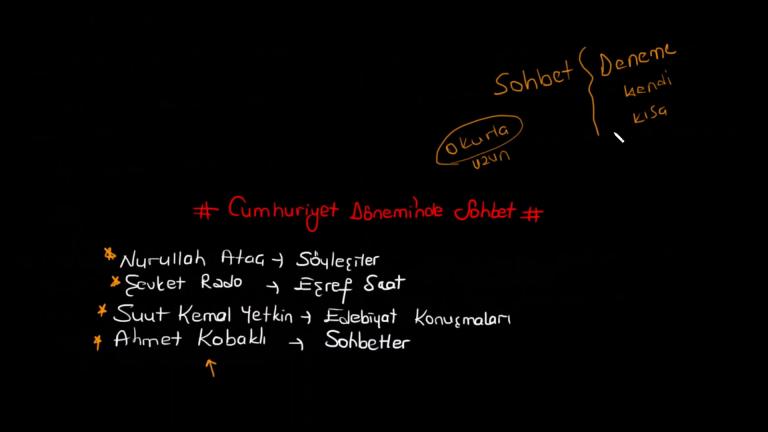 Sohbet { Deneme
kendi
kısa
okurla
uzun
# Cumhuriyet Döneminde Sohbet #
* Nurullah Ataç → Söyleşiler
* Şevket Rado → Eşref Saat
* Suut Kemal Yetkin → Edebiyat Konuşmaları
* Ahmet Kabaklı → Sohbetler